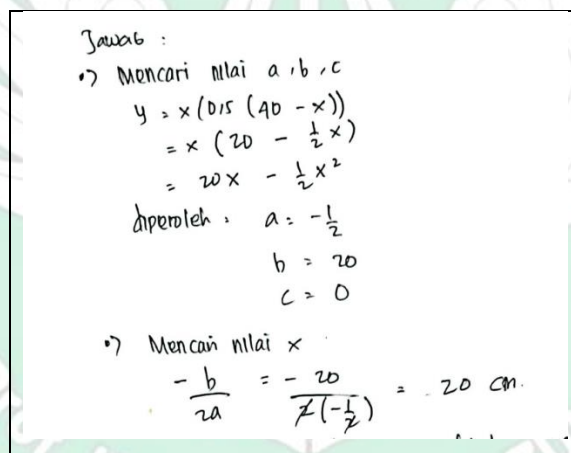 Jawab :
•) Mencari nilai a, b, c
y = x(0,5 (40 - x))
= x (20 - 1/2 x)
= 20x - 1/2 x²
diperoleh : a = -1/2
b = 20
c = 0
•) Mencari nilai x
-b/2a = - 20/2(-1/2) = 20 cm.